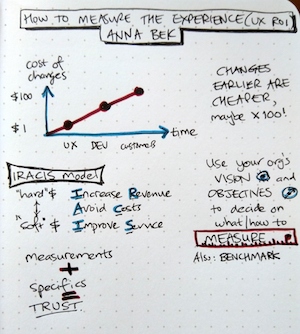 HOW TO MEASURE THE EXPERIENCE (UX ROI)
ANNA BEK
cost of
changes
$100
$1
UX DEV CUSTOMER
time
CHANGES
EARLIER ARE
CHEAPER,
maybe x100!
IRACIS model
"hard" $ Increase Revenue
Avoid Costs
"soft" $ Improve Service
measurements
+
specifics
=
TRUST
Use your org's
VISION and
OBJECTIVES
to decide on
what/how to
MEASURE
Also: BENCHMARK